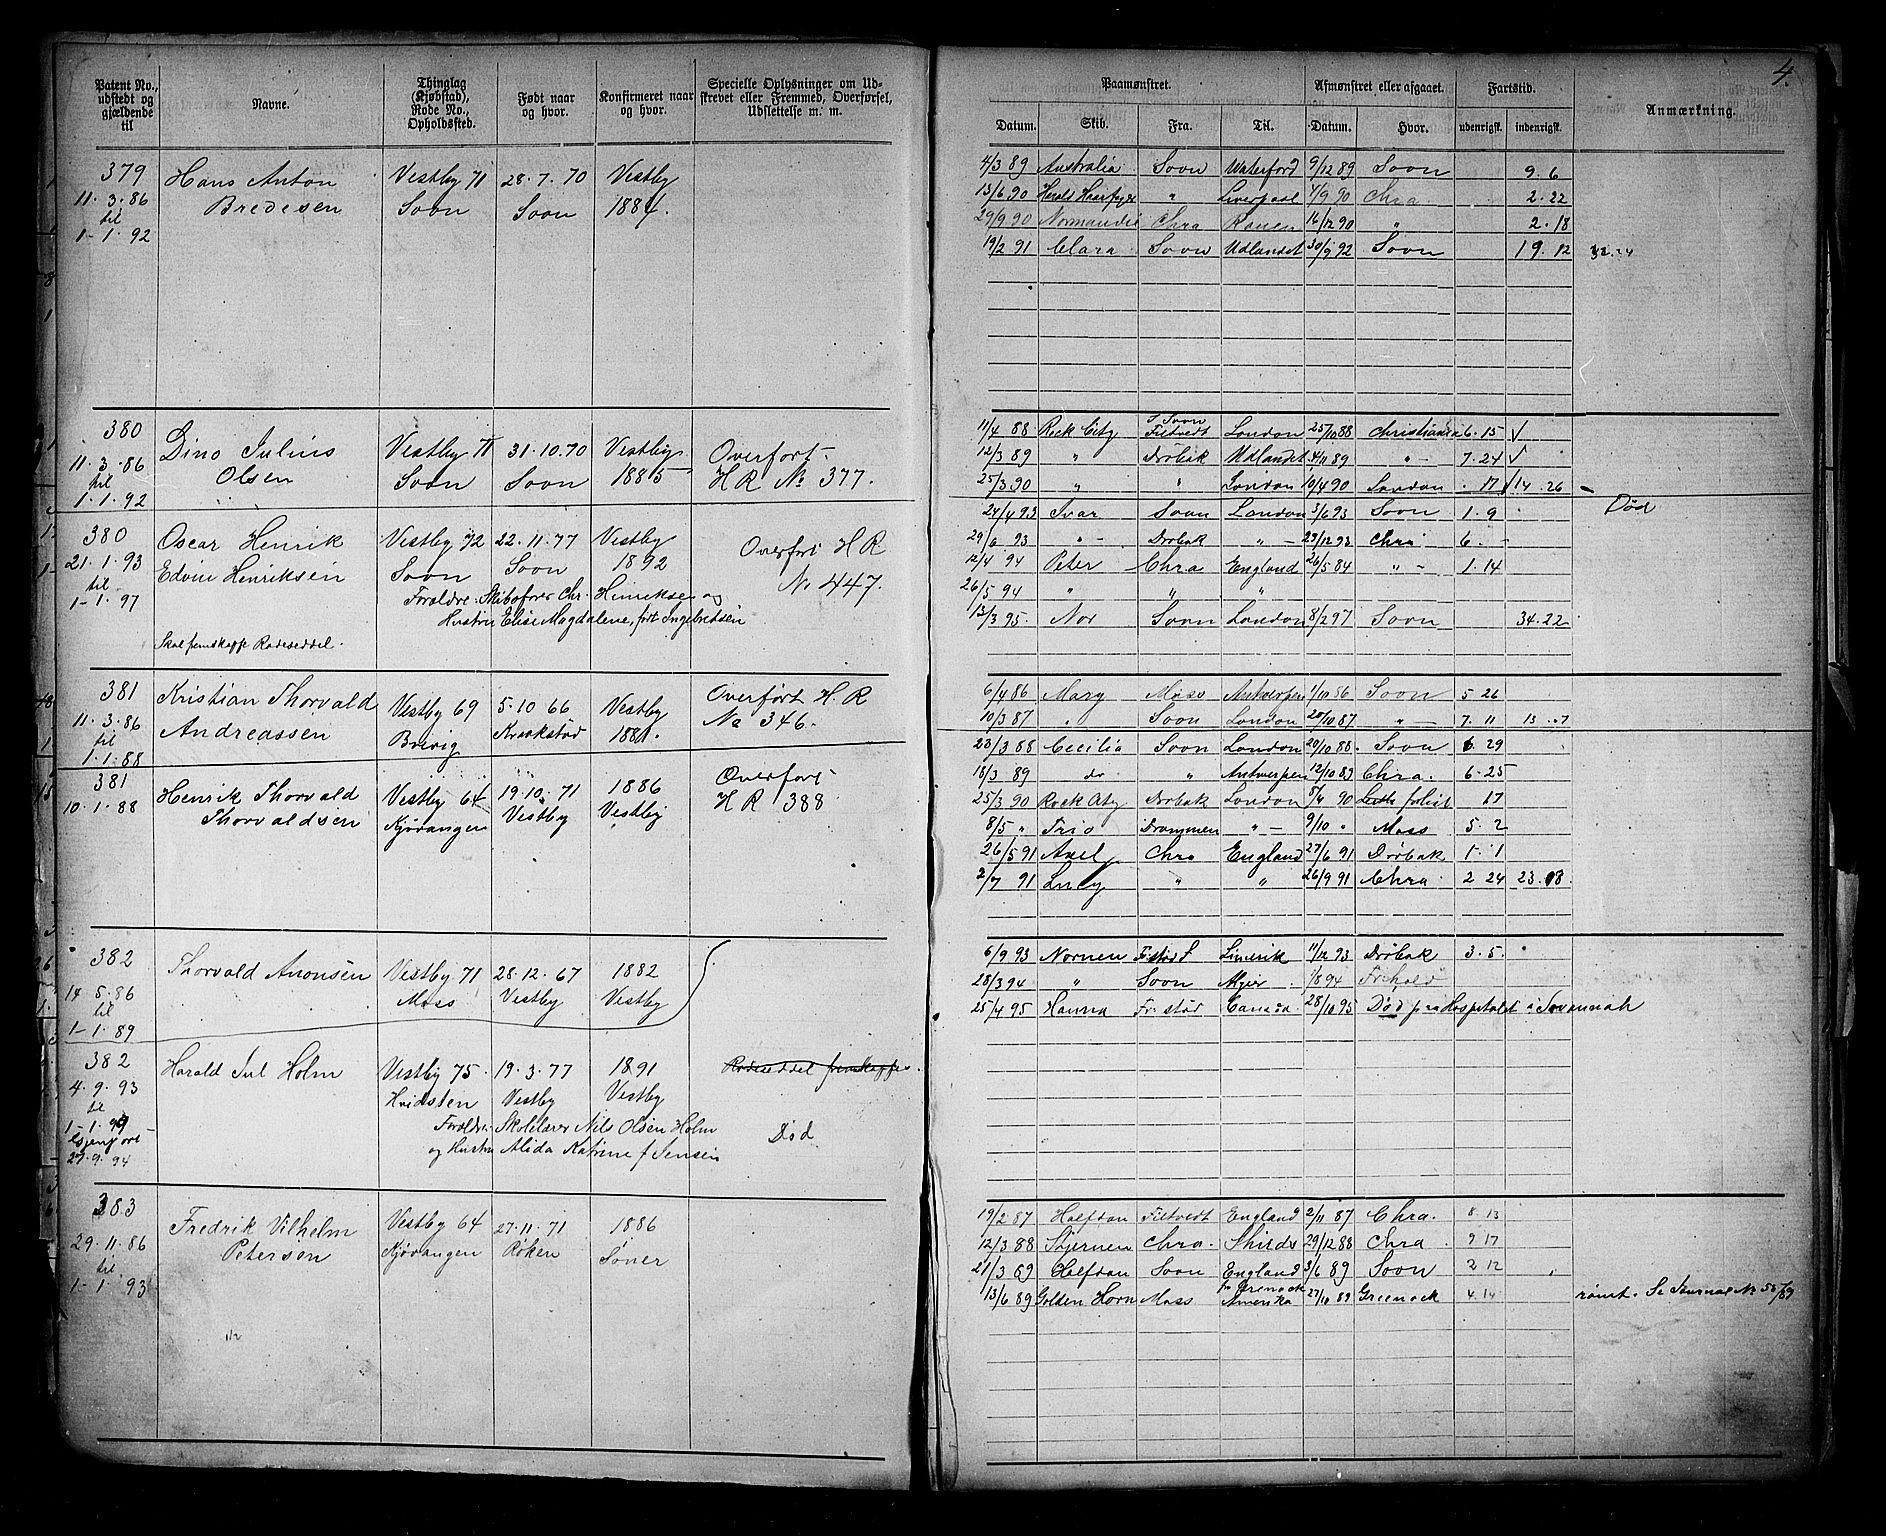 Patent No., udstedt og gjældende til
Navne.
Thinglag (Kjøbstad), Rode No., Opholdssted.
Født naar og hvor.
Konfirmeret naar og hvor.
Specielle Oplysninger om Udskrevet eller Fremmed, Overførsel, Udslettelse m. m.
379
11.3.86
til
1-1.92
Hans Anton
Bredesen
Vestby 71
Soon
28.7.70
Soon
Vestby
1884.
380
11.3.86
til
1.1.92
Dino Julius
Olsen
Vestby 71
Soon
31.10.70
Soon
Vestby
1885
Overført
H R No 377.
380
21.1.93
til
1-1.97
Oscar Henrik
Edvin Henriksen
Vestby 72
Soon
22.11.77
Soon
Vestby
1892
Overført H R
No 447.
Forældre: Chr. Henriksen og
Hustru Elise Magdalene, født Ingebretsen
Skal fremskaffe Rodeseddel.
381
11.3.86
til
1.1.88
Kristian Thorvald
Andreassen
Vestby 69
Brevig
5.10 66
Kraakstad
Vestby
1881.
Overført H. R
No 346.
381
10.1.88
Henrik Thorvald
Thorvaldsen
Vestby 64
Kjøvangen
19.10.71
Vestby
1886
Vestby
Overført
H R 388
382
14.5.86
til
1-1.89
Thorvald Aronsen
Vestby 71
Moss
28.12.67
Vestby
1882
Vestby
382
4.9.93
til
1-1.99
27.9.94
Harald Jul Holm
Vestby 75
Hvidsten
19.3.77
Vestby
1891
Vestby
Rodeseddel fremskaffes.
Forældre: Skolelærer Nils Olsen Holm
og Hustru Alida Katrine f Jensen
Død
383
29.11.86
til
1-1.93
Fredrik Vilhelm
Petersen
Vestby 64
Kjøvangen
27.11.71
Røken
1886
Soner
4.
Paamønstret.
Afmønstret eller afgaaet.
Fartstid.
Anmærkning.
Datum. Skib. Fra. Til. Datum. Hvor. udenrigsk. indenrigsk.
4/3 89 Australia Soon Waterford 9/12 89 Soon 9.6
13/6 90 Harald Haarfager " Liverpool 4/9 90 Chra 2.22
29/9 90 Normandie Chra Rouen 16/12 90 " 2.18
19/2 91 Clara Soon Udlandet 30/9 92 Soon 19.12
11/4 88 Rock City Soon Filtvedt London 25/10 88 Christiania 6.15 √
12/3 89 " Drøbak Udlandet 4/11 89 " - 7.24 √
25/3 90 " " London 10/4 90 London . 17 14.26
24/4 93 Ivar Soon London 3/6 93 Soon 1.9
Død
29/6 93 " - Drøbak " - 29/12 93 Chra 6 -
12/4 94 Peter Chra England 26/5 84 " - 1.14
26/5 94 " " "
13/3 95. Nor Soon London 8/2 97 Soon 34.22
6/4 86 Mary Moss Antwerpen 1/10 86 Soon 5 26
10/3 87 " Soon London 20/10 87 " - 7.11 13.07
23/3 88 Cecilia Soon London 20/10 88. Soon 6.29
18/3 89 do " Antwerpen 12/10 89 Chra. 6.25
25/3 90 Rock City Drøbak London 5/4 90 Leith forlist 17
8/5 " Trio Drammen " - 9/10 " Moss 5.2
26/5 91 Axel Chra England 27/6 91 Drøbak 1.1
2/7 91 Lucy " " 26/9 91 Chra 2 24 23.08
6/9 93 Nornen Limerik 11/12 93 Drøbak 3.5.
28/3 94 " Soon 1/8 94
25/4 95 Hanna Canada 28/10 95 Død paa Hospitalet i Savannah
19/2 87 Halfdan Filtvedt England 2/11 87 Chra. 8 13
12/3 88 Stjernen Chra. Shields 29/12 88 Chra 9 17
21/3 89 Halfdan Soon England 3/6 89 Soon 2 12
13/6 89 Golden Horn Moss Amerika 27/10 89 Greenock 4 14
rømt. Se Journal No 50/89